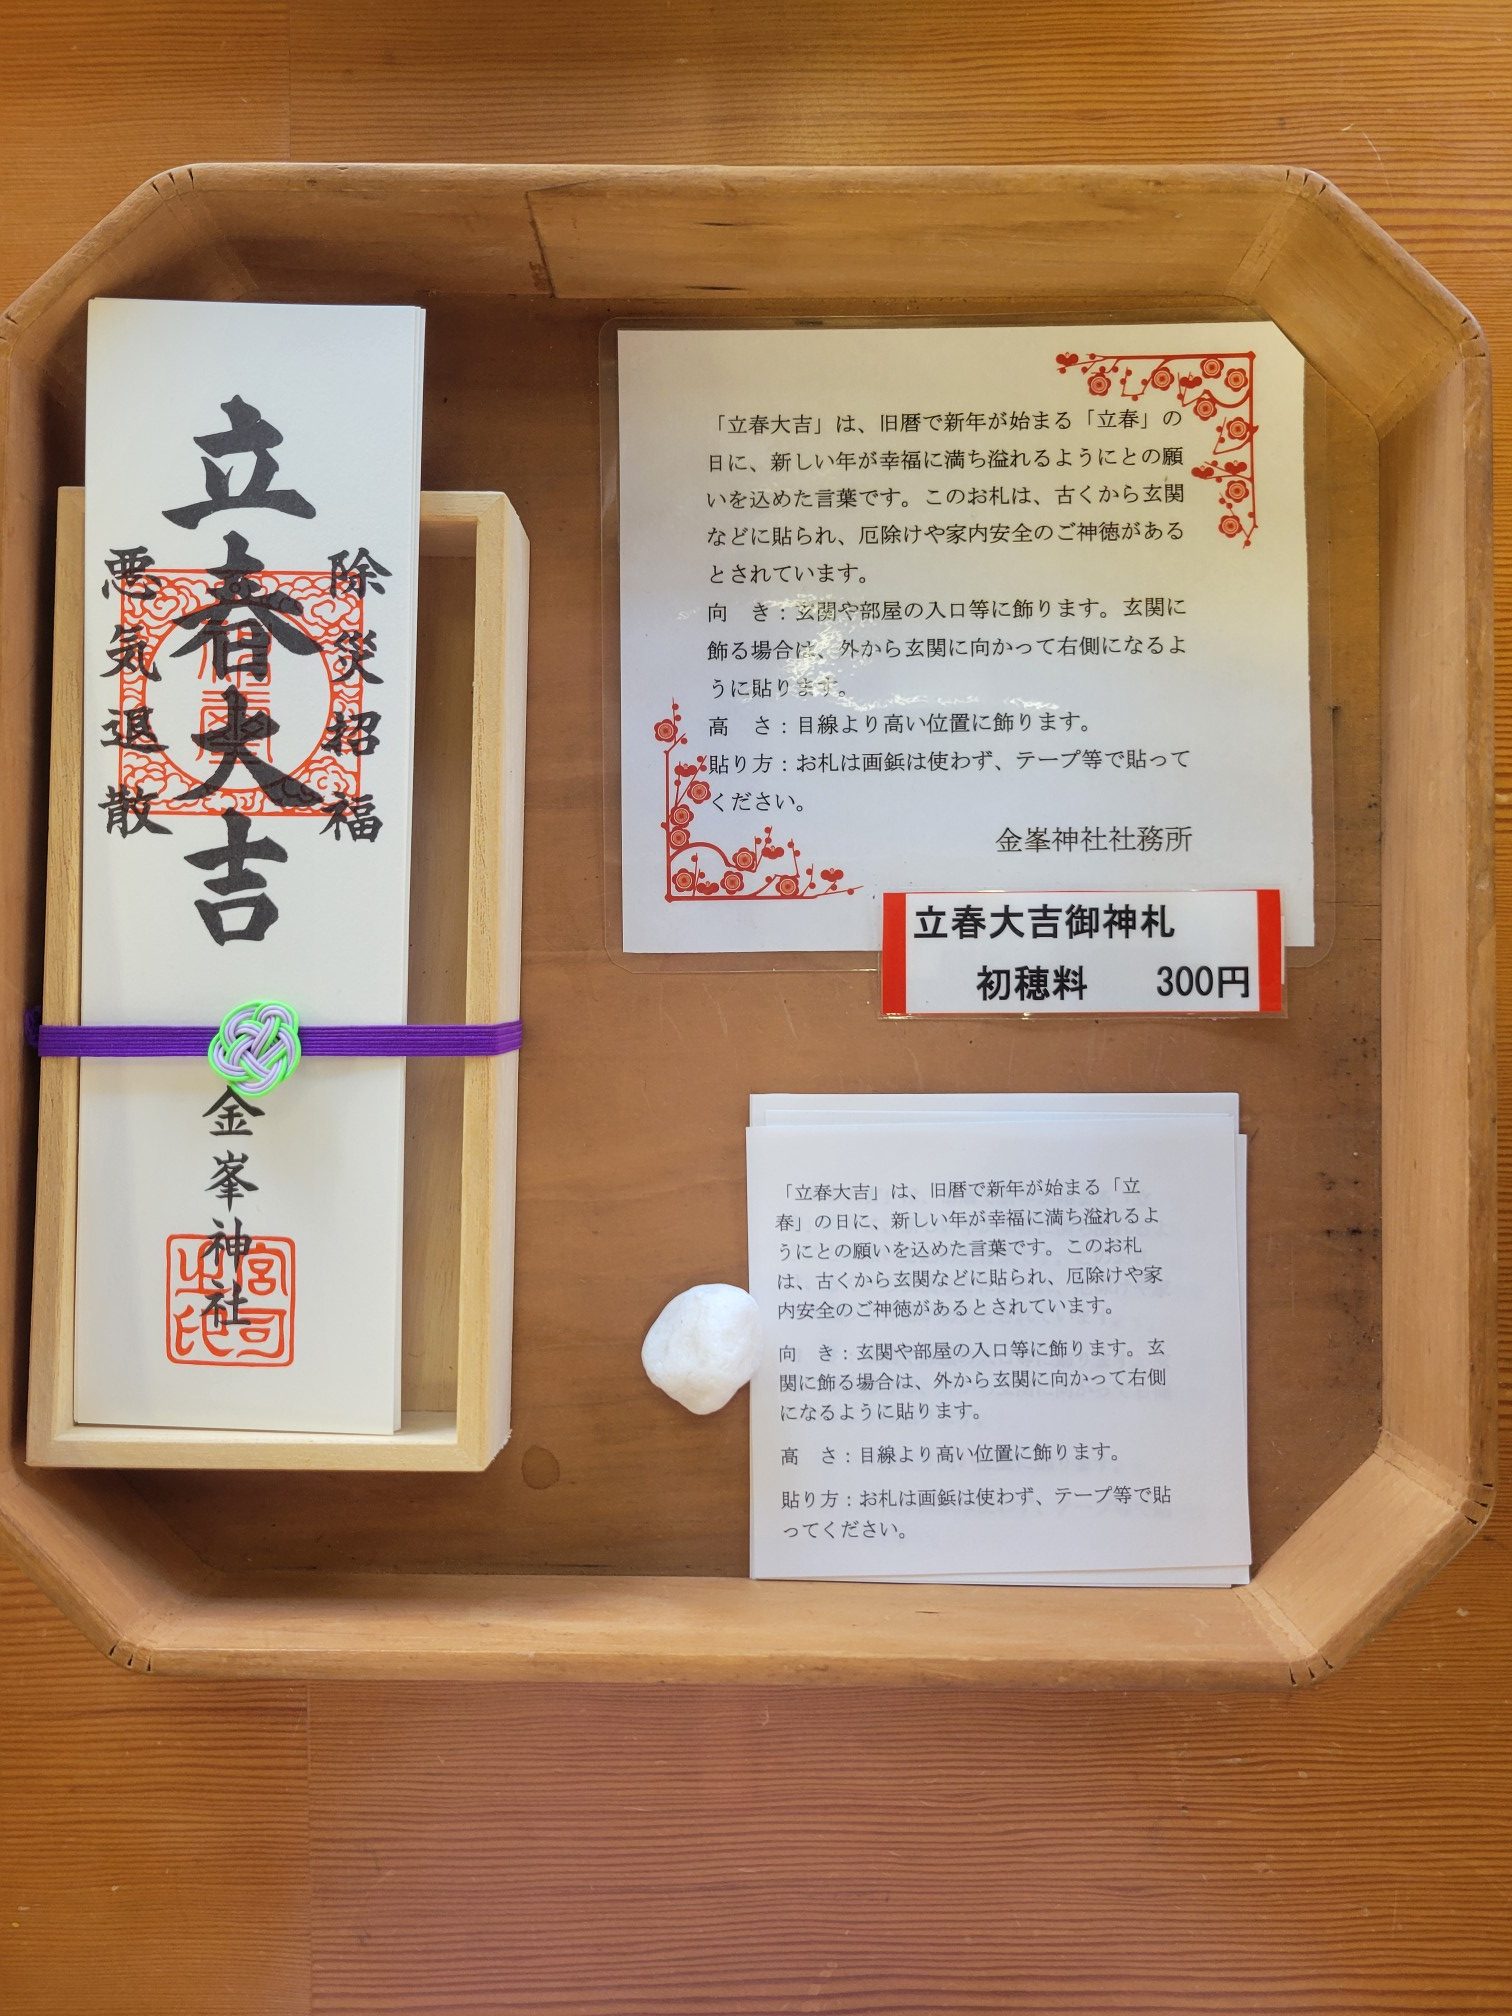 立春大吉
除災招福
悪気退散
金峯神社
宮司之印
「立春大吉」は、旧暦で新年が始まる「立春」の
日に、新しい年が幸福に満ち溢れるようにとの願
いを込めた言葉です。このお札は、古くから玄関
などに貼られ、厄除けや家内安全のご神徳がある
とされています。
向　き：玄関や部屋の入口等に飾ります。玄関に
飾る場合は、外から玄関に向かって右側になるよ
うに貼ります。
高　さ：目線より高い位置に飾ります。
貼り方：お札は画鋲は使わず、テープ等で貼って
ください。
金峯神社社務所
立春大吉御神札
初穂料　300円
「立春大吉」は、旧暦で新年が始まる「立
春」の日に、新しい年が幸福に満ち溢れるよ
うにとの願いを込めた言葉です。このお札
は、古くから玄関などに貼られ、厄除けや家
内安全のご神徳があるとされています。
向　き：玄関や部屋の入口等に飾ります。玄
関に飾る場合は、外から玄関に向かって右側
になるように貼ります。
高　さ：目線より高い位置に飾ります。
貼り方：お札は画鋲は使わず、テープ等で貼
ってください。